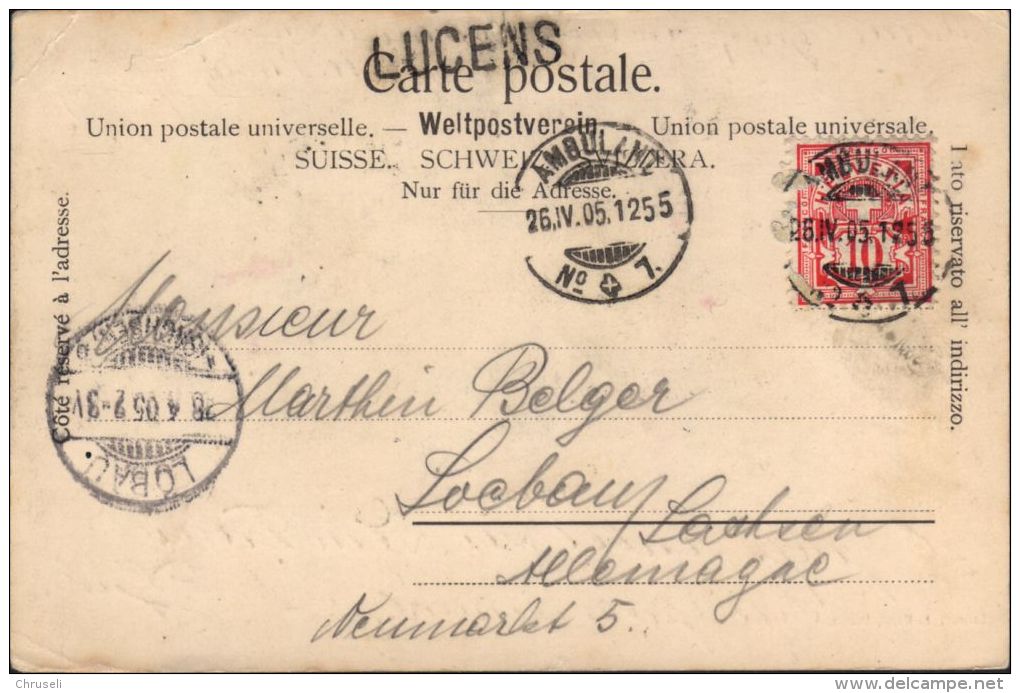 LUCENS
Carte postale.
Union postale universelle. — Weltpostverein. Union postale universale.
SUISSE. SCHWEIZ. SVIZZERA.
Nur für die Adresse.
AMBULANT
26.IV.05.1255
No 7.
AMBULANT
26.IV.05.1255
7.
10
Côté réservé à l'adresse.
Lato riservato all' indirizzo.
Monsieur
Marthin Belger
Loebau
Sachsen
Allemagne
Neumarkt 5.
4.05.2-3V
LÖBAU
Chruseli
delcampe.net